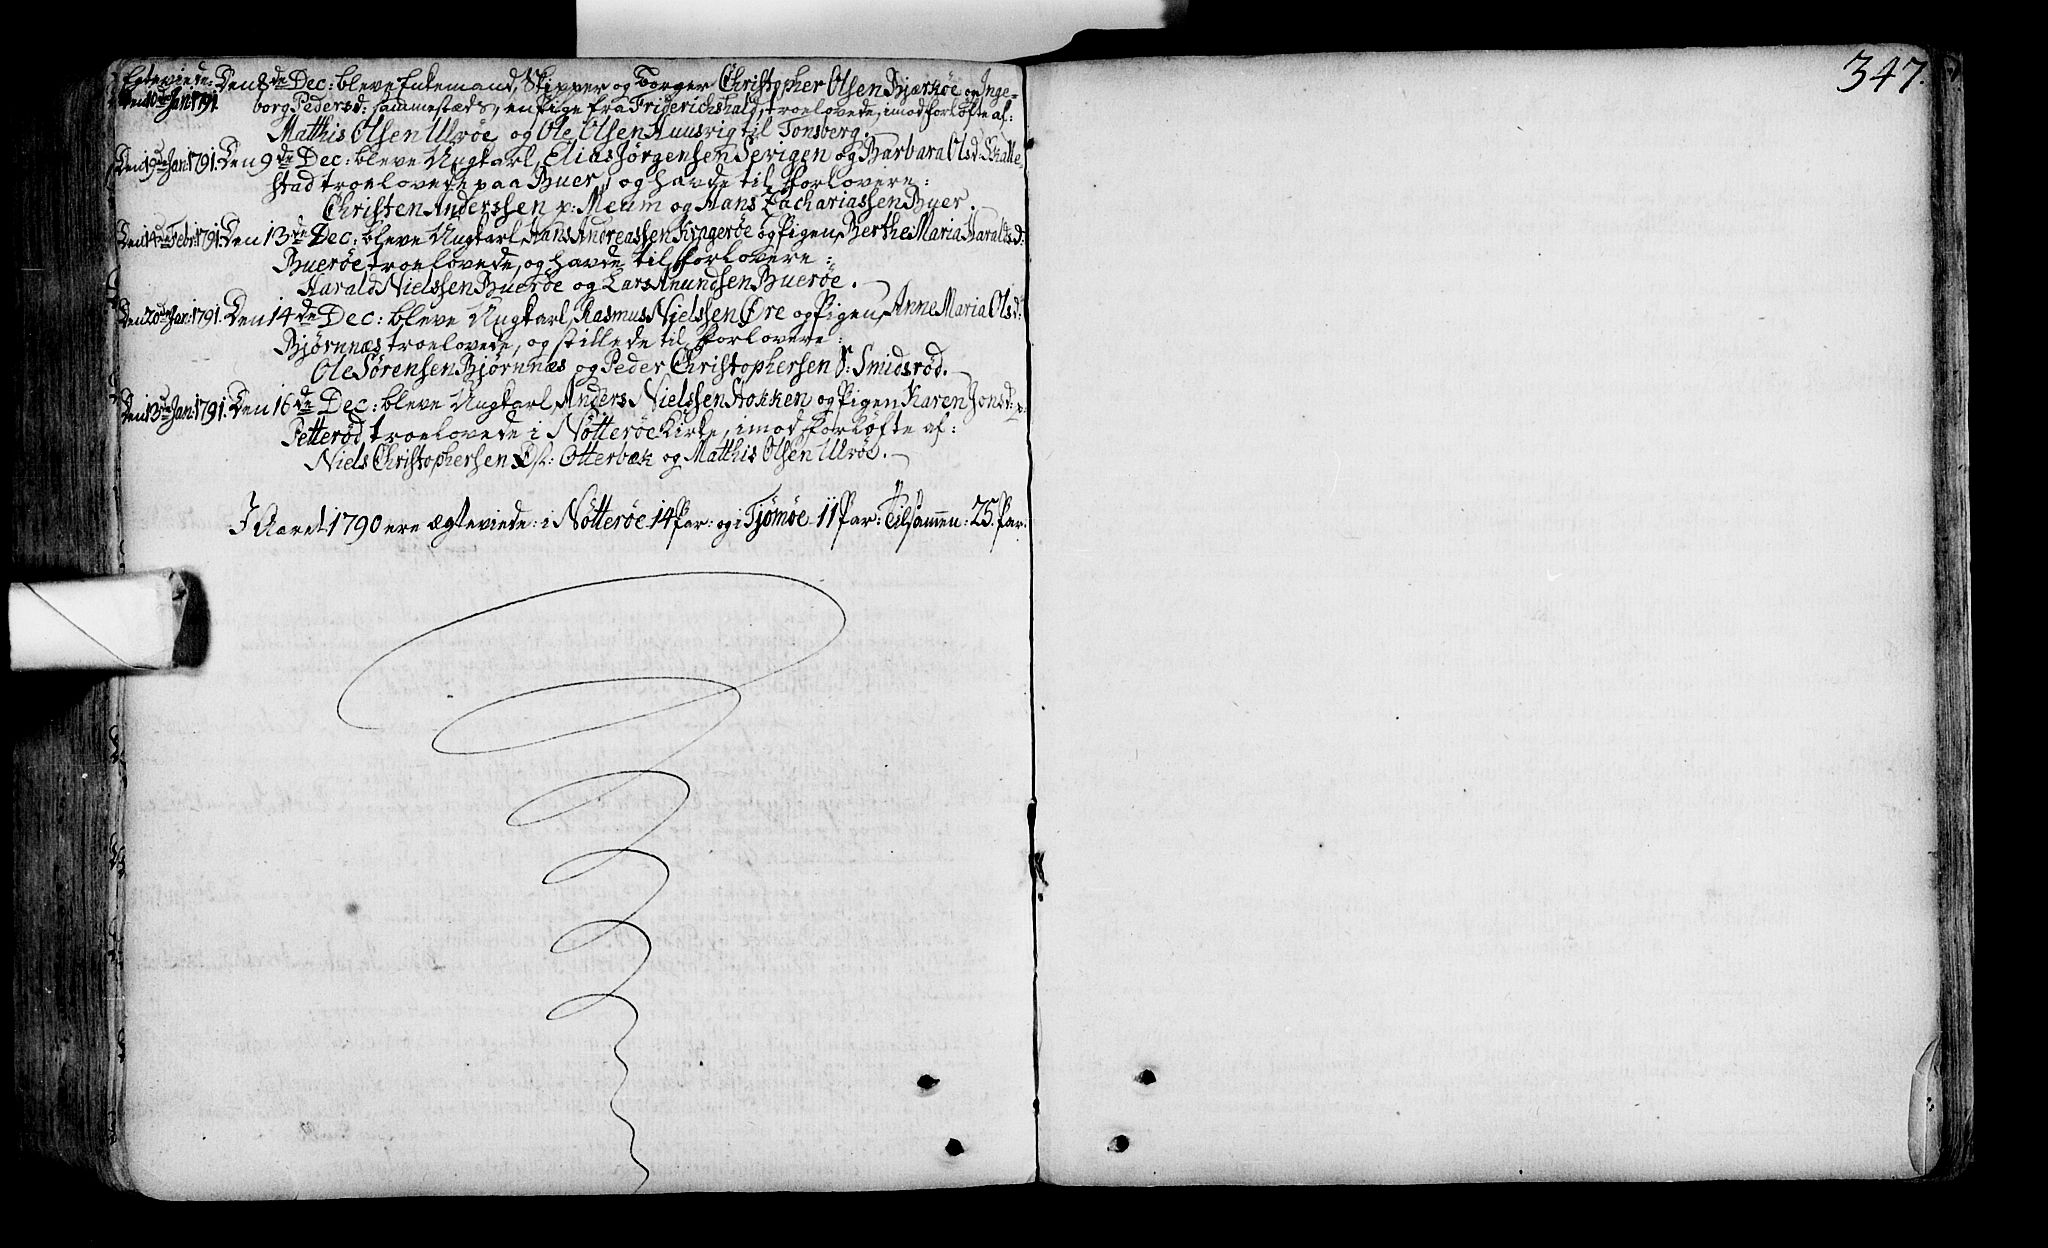 347.
Egteviede: Den 8de Dec: bleve Enkemand, Skipper og Borger Christopher Olsen Bjærkøe og Inge-
Den 10de Jan: 1791. borg Pedersd: sammestæds, en Pige fra Friderichshald, troelovede, imod Forløfte af:
Matthis Olsen Ulvøe og Ole Olsen Huusvig til Tonsberg.
Den 19de Jan: 1791. Den 9de Dec: bleve Ungkarl, Elias Jørgensen Serigen og Barbara Olsd: Skalle-
stad troelovede paa Buer, og havde til Forlovere:
Christen Anderssen p: Meum og Hans Zachariassen Buer.
Den 14de Febr: 1791. Den 13de Dec: bleve Ungkarl, Hans Andreassen Krygerøe og Pigen, Berthe Maria Haraldsd:
Buerøe troelovede, og havde til Forlovere:
Harald Nielssen Buerøe og Lars Anundsen Buerøe.
Den 20de Jan: 1791. Den 14de Dec: bleve Ungkarl, Rasmus Nielssen Øre og Pigen, Anne Maria Olsd:
Bjørnnæs troelovede, og stillede til Forlovere:
Ole Sørensen Bjørnnæs og Peder Christophersen S: Smidsrød.
Den 13de Jan: 1791. Den 16de Dec: bleve Ungkarl, Anders Nielssen Hokken og Pigen Karen Jonsd: p:
Petterød, troelovede i Nøtterøe Kirke, imod Forløfte af:
Niels Christophersen Øst: Otterbæk og Matthis Olsen Ulvøe.
I Aaret 1790 ere ægteviede: i Nøtterøe 14 Par: og i Tjømøe 11 Par: Tilsammen: 25. Par.